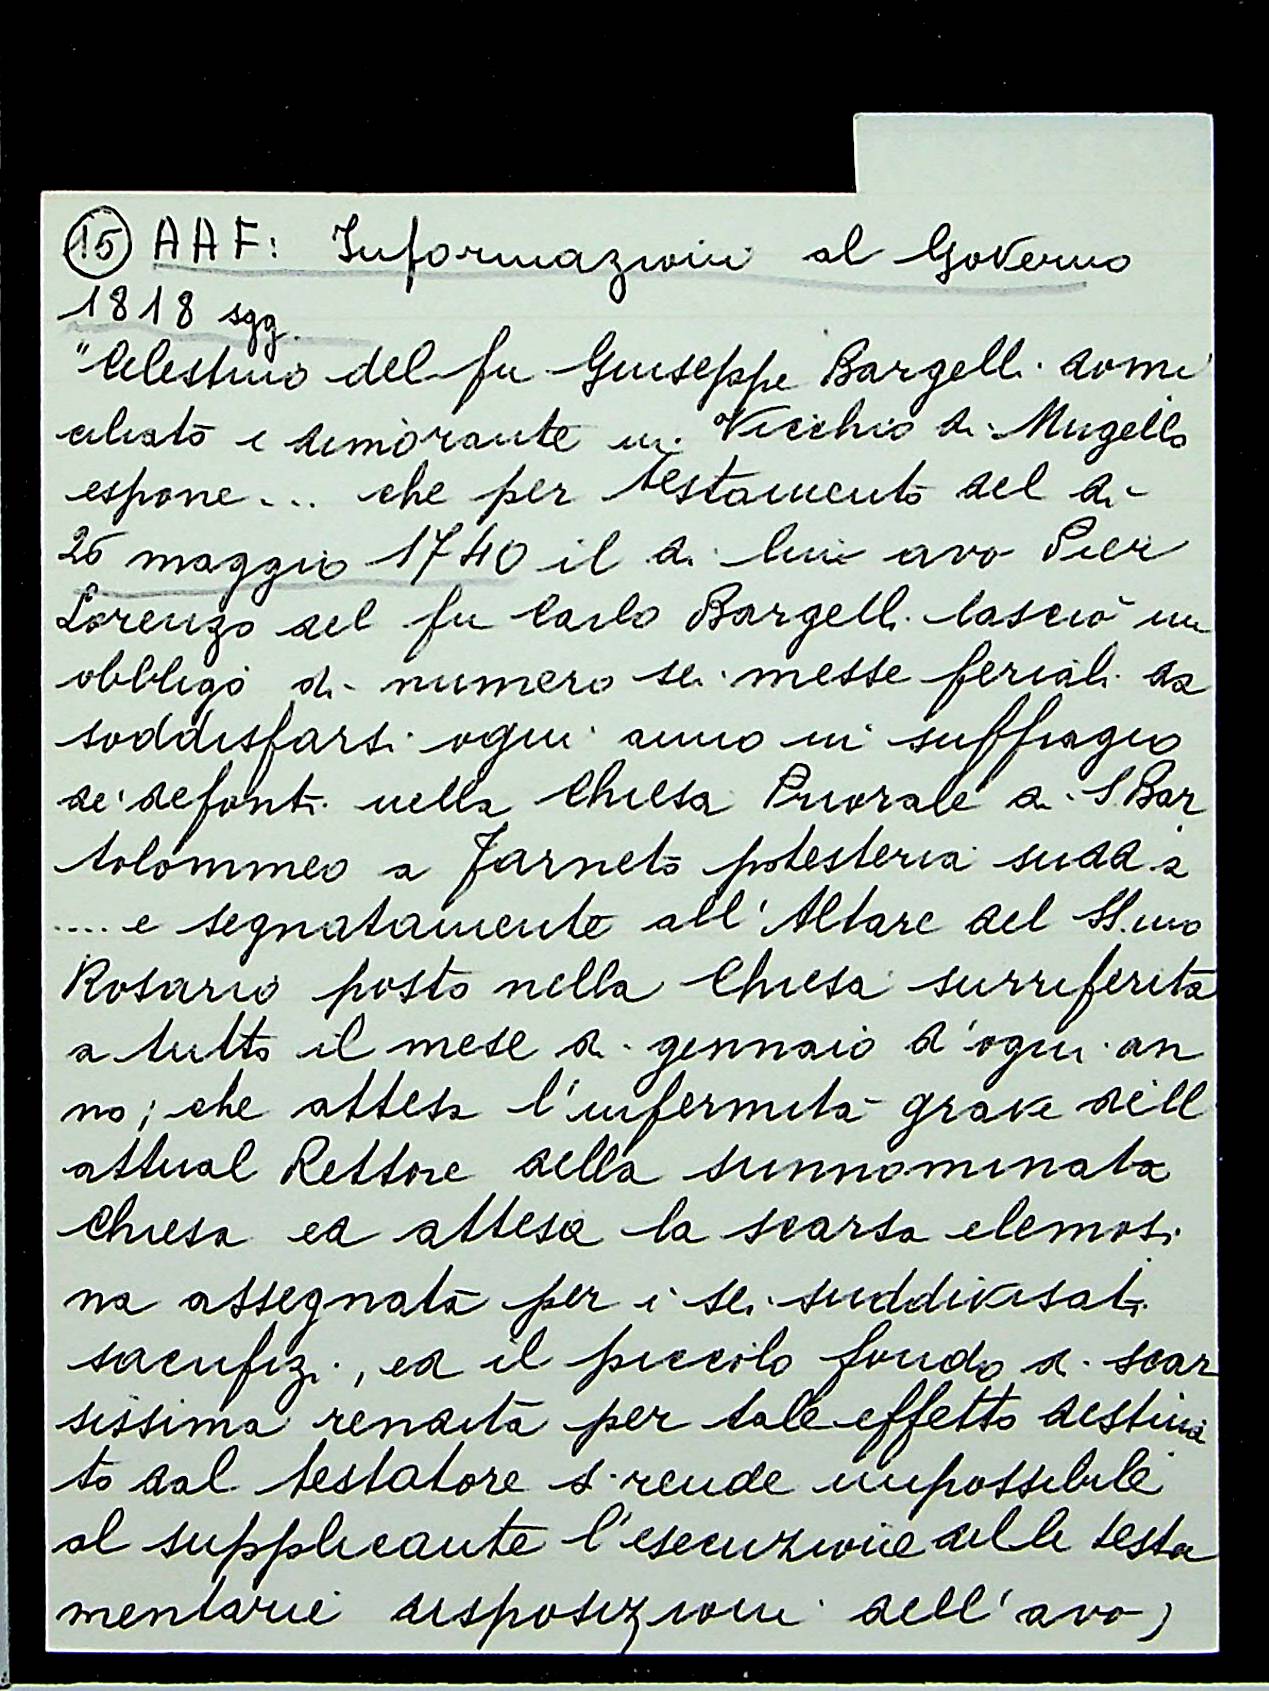 15 AAF: Informazioni al Governo
1818 sgg.
"Celestino del fu Giuseppe Bargelli domi
ciliato e dimorante in Vicchio di Mugello
espone... che per testamento del dì
26 maggio 1740 il di lui avo Pier
Lorenzo del fu Carlo Bargelli lasciò un
obbligo di numero sei messe feriali da
soddisfarsi ogni anno in suffragio
de' defonti nella Chiesa Priorale di S. Bar
tolommeo a Farneto potesteria sudd.a
.... e segnatamente all'Altare del SS.mo
Rosario posto nella Chiesa surriferita
a tutto il mese di gennaio d'ogni an
no; che attesa l'infermità grave dell
attual Rettore della sunnominata
Chiesa ed attesa la scarsa elemosi
na assegnata per i sei suddivisati
sacrifizi, ed il piccolo fondo di scar
sissima rendita per tale effetto destina
to dal testatore si rende impossibile
al supplicante l'esecuzione delle testa
mentarie disposizioni dell'avo,